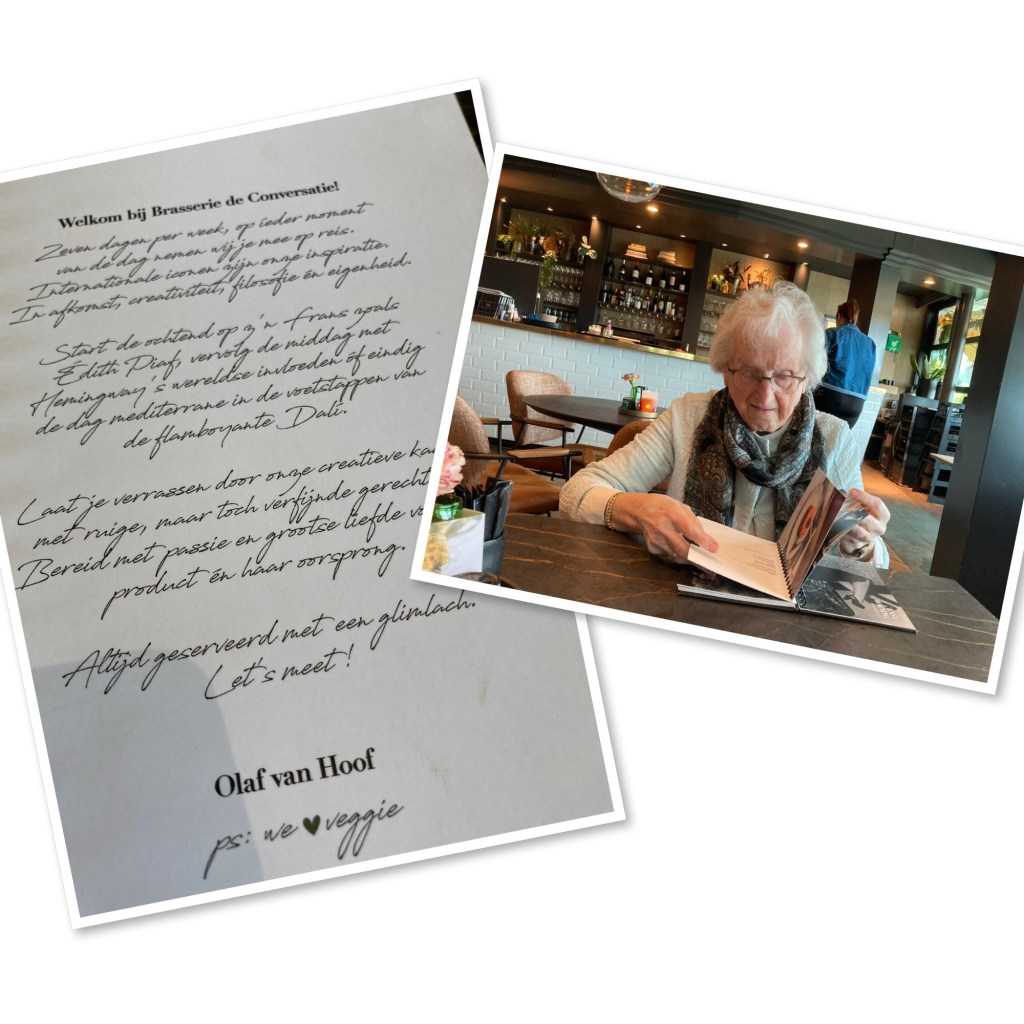 Welkom bij Brasserie de Conversatie!
Zeven dagen per week, op ieder moment
van de dag nemen wij je mee op reis.
Internationale iconen zijn onze inspiratie.
In afkomst, creativiteit, filosofie én eigenheid.
Start de ochtend op z'n Frans zoals
Edith Piaf, vervolg de middag met
Hemingway's wereldse invloeden óf eindig
de dag mediterrane in de voetstappen van
de flamboyante Dalí.
Laat je verrassen door onze creatieve
met ruige, maar toch verfijnde
Bereid met passie en grootse liefde
product én haar oorsprong.
Altijd geserveerd met een glimlach.
Let's meet!
Olaf van Hoof
ps: we ♥ veggie